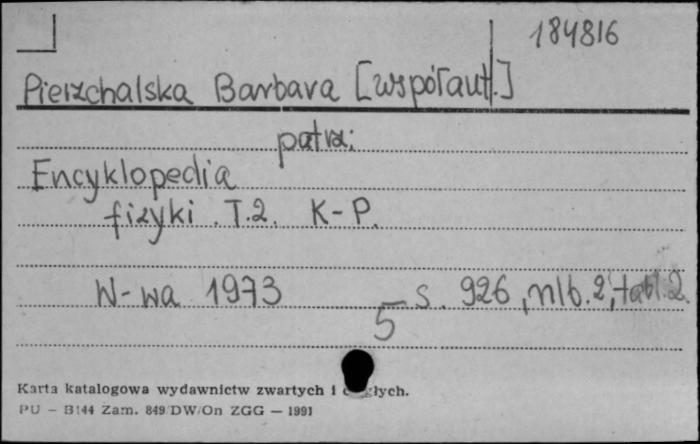 184816
Pierzchalska Barbara [współaut.]
patrz:
Encyklopedia
fizyki. T.2. K-P.
W-wa 1973 s. 926, nlb. 2, tabl. 2
5
Karta katalogowa wydawnictw zwartych i
PU — B144 Zam. 849/DW/On ZGG — 1991